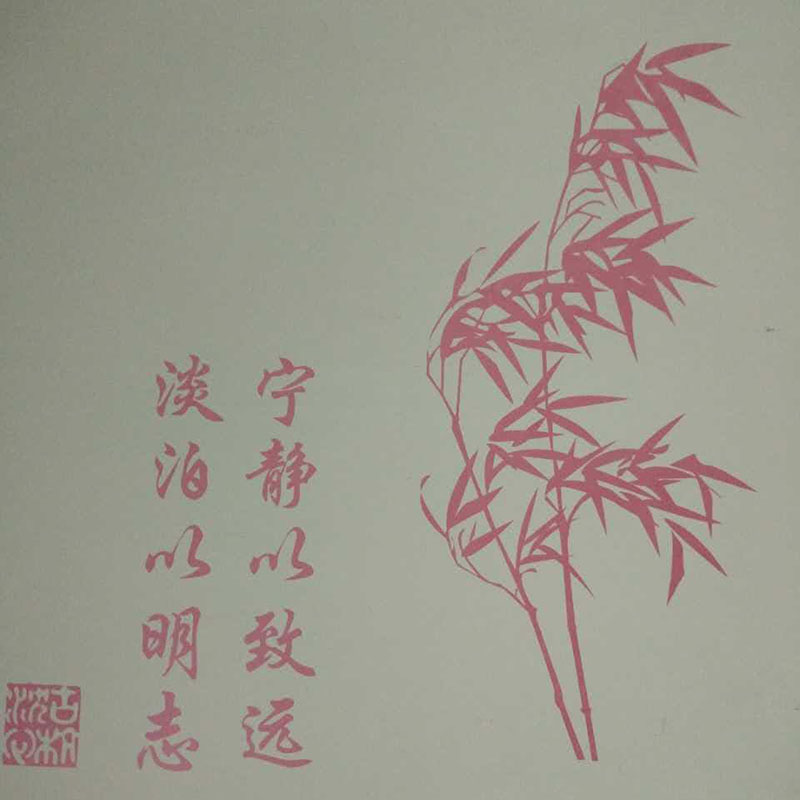 宁静以致远
淡泊以明志